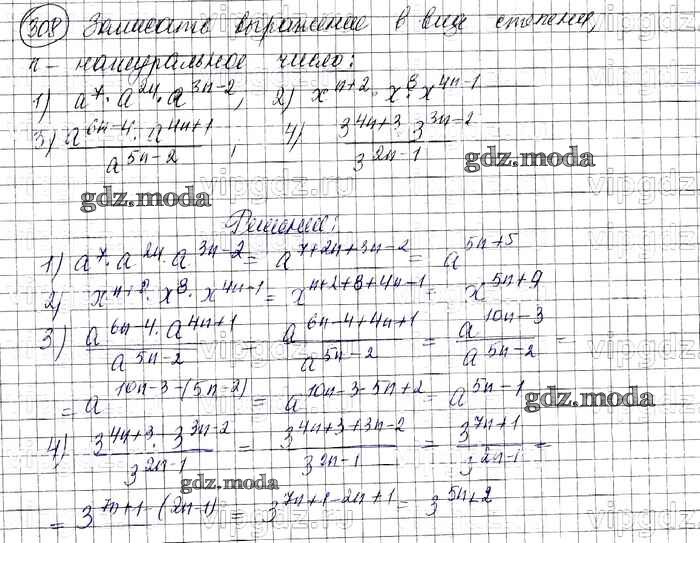 308 Записать выражение в виде степени,
n – натуральное число:
1) a⁷ · a²ⁿ · a³ⁿ⁻², 2) xⁿ⁺² · x⁸ · x⁴ⁿ⁻¹
3) a⁶ⁿ⁻⁴ · a⁴ⁿ⁺¹ / a⁵ⁿ⁻² ; 4) 3⁴ⁿ⁺³ · 3³ⁿ⁻² / 3²ⁿ⁻¹
gdz.moda
gdz.moda
vipgdz.ru
Решение:
1) a⁷ · a²ⁿ · a³ⁿ⁻² = a⁷⁺²ⁿ⁺³ⁿ⁻² = a⁵ⁿ⁺⁵
2) xⁿ⁺² · x⁸ · x⁴ⁿ⁻¹ = xⁿ⁺²⁺⁸⁺⁴ⁿ⁻¹ = x⁵ⁿ⁺⁹
3) a⁶ⁿ⁻⁴ · a⁴ⁿ⁺¹ / a⁵ⁿ⁻² = a⁶ⁿ⁻⁴⁺⁴ⁿ⁺¹ / a⁵ⁿ⁻² = a¹⁰ⁿ⁻³ / a⁵ⁿ⁻² =
= a¹⁰ⁿ⁻³⁻⁽⁵ⁿ⁻²⁾ = a¹⁰ⁿ⁻³⁻⁵ⁿ⁺² = a⁵ⁿ⁻¹
gdz.moda
4) 3⁴ⁿ⁺³ · 3³ⁿ⁻² / 3²ⁿ⁻¹ = 3⁴ⁿ⁺³⁺³ⁿ⁻² / 3²ⁿ⁻¹ = 3⁷ⁿ⁺¹ / 3²ⁿ⁻¹ =
gdz.moda
= 3⁷ⁿ⁺¹⁻⁽²ⁿ⁻¹⁾ = 3⁷ⁿ⁺¹⁻²ⁿ⁺¹ = 3⁵ⁿ⁺²
vipgdz.ru